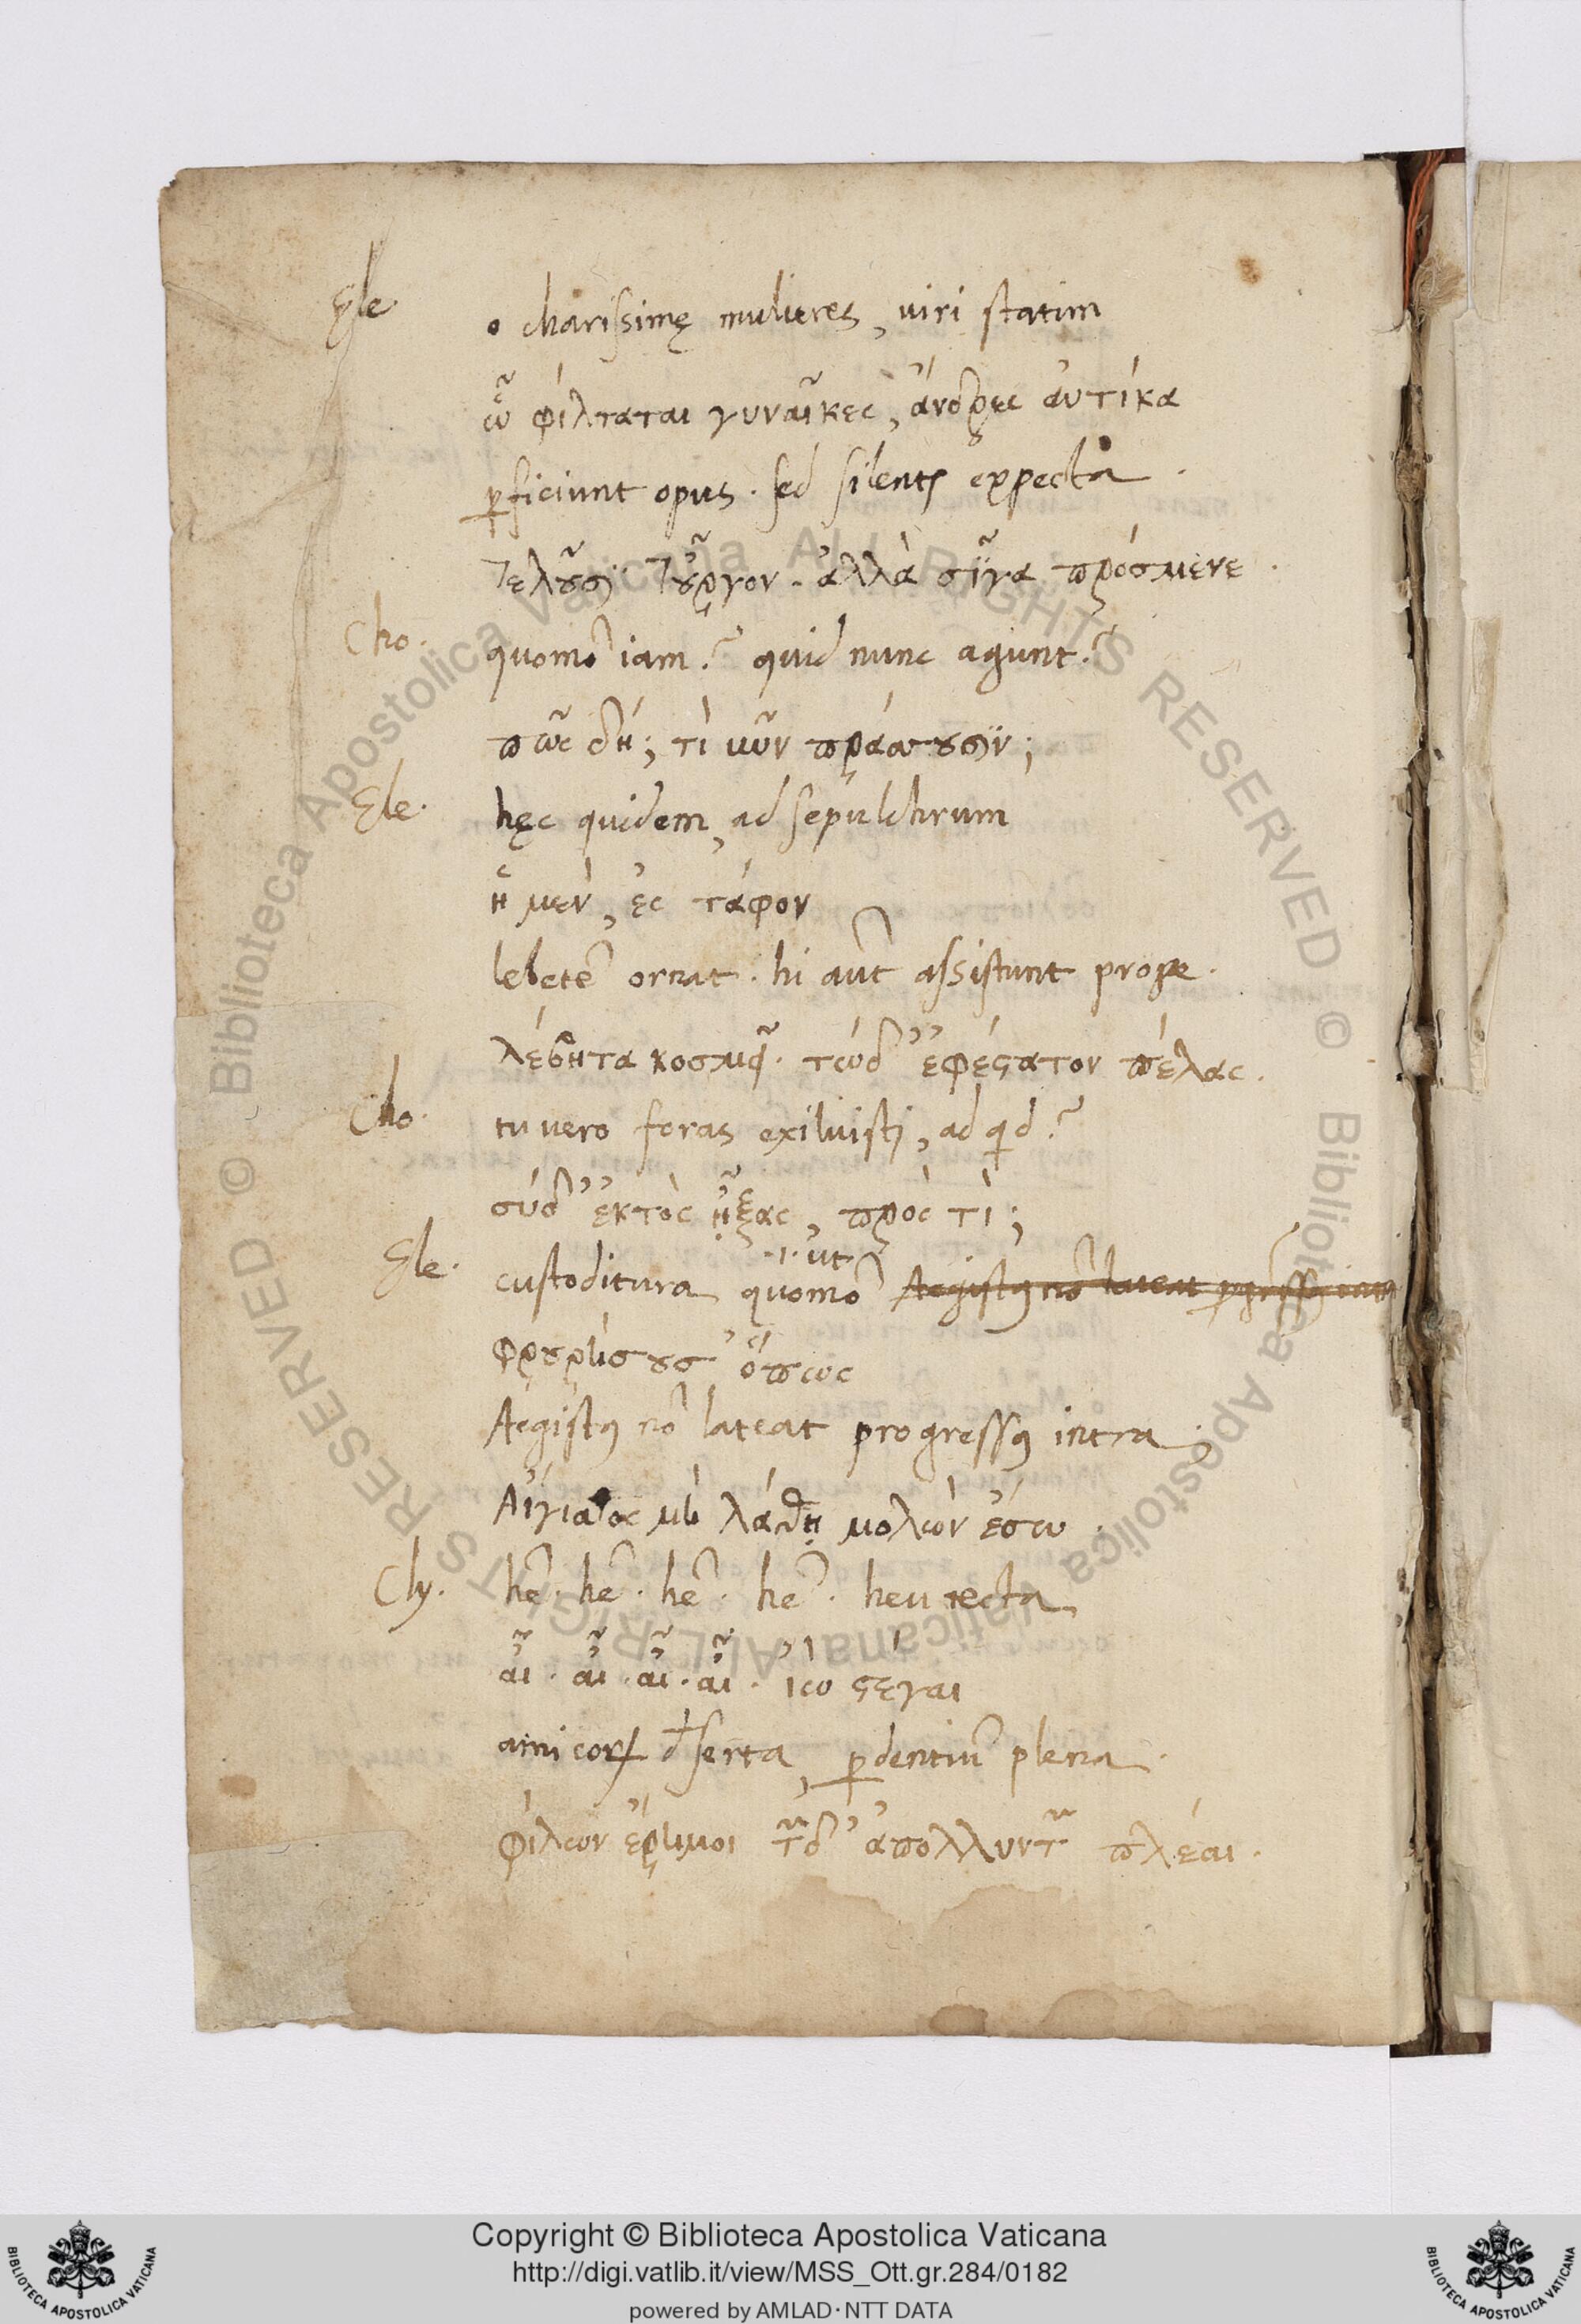 Ele· o charissimę mulieres, uiri statim
ὦ φίλταται γυναῖκες, ἄνδρες ἀυτίκα
ꝑficiunt opus. sed silenter expecta.
τελοῦσϊ τοὖργον. ἀλλὰ σῖγα πρόσμενε.
Cho. quomō iam? quid nunc agunt?
πῶς δή; τί νῦν πράσσουσϊν;
Ele. hęc quidem, ad sepulchrum
ἡ μὲν, ἐς τάφον
lebetē ornat. hi aut̄ assistunt prope.
λέβητα κοσμεῖ. τώδ' ἐφέϛατον πέλας.
Cho. tu uero foras exiluisti, ad qid?
σύδ' ἐκτὸς ᾖξας, πρὸς τί;
Ele. custoditura quomō .i. ut
φρουρήσουσ' ὅπως
Aegistꝰ nō lateat progressꝰ intra.
Αἴγισθος μὴ λάθῃ μολὼν ἔσω.
Cly. hē. hē. hē. hē. heu tecta
αἶ. αἶ. αἶ. αἶ. ἰὼ ϛέγαι
amicoꝝ dserta, ꝑdentiū plena.
φίλων ἔρημοι τῶνδ' ἀπολλύντων πλέαι.
Copyright © Biblioteca Apostolica Vaticana
http://digi.vatlib.it/view/MSS_Ott.gr.284/0182
powered by AMLAD·NTT DATA
BIBLIOTECA APOSTOLICA VATICANA
BIBLIOTECA APOSTOLICA VATICANA
Biblioteca Apostolica Vaticana ALL RIGHTS RESERVED ©
Biblioteca Apostolica Vaticana ALL RIGHTS RESERVED ©